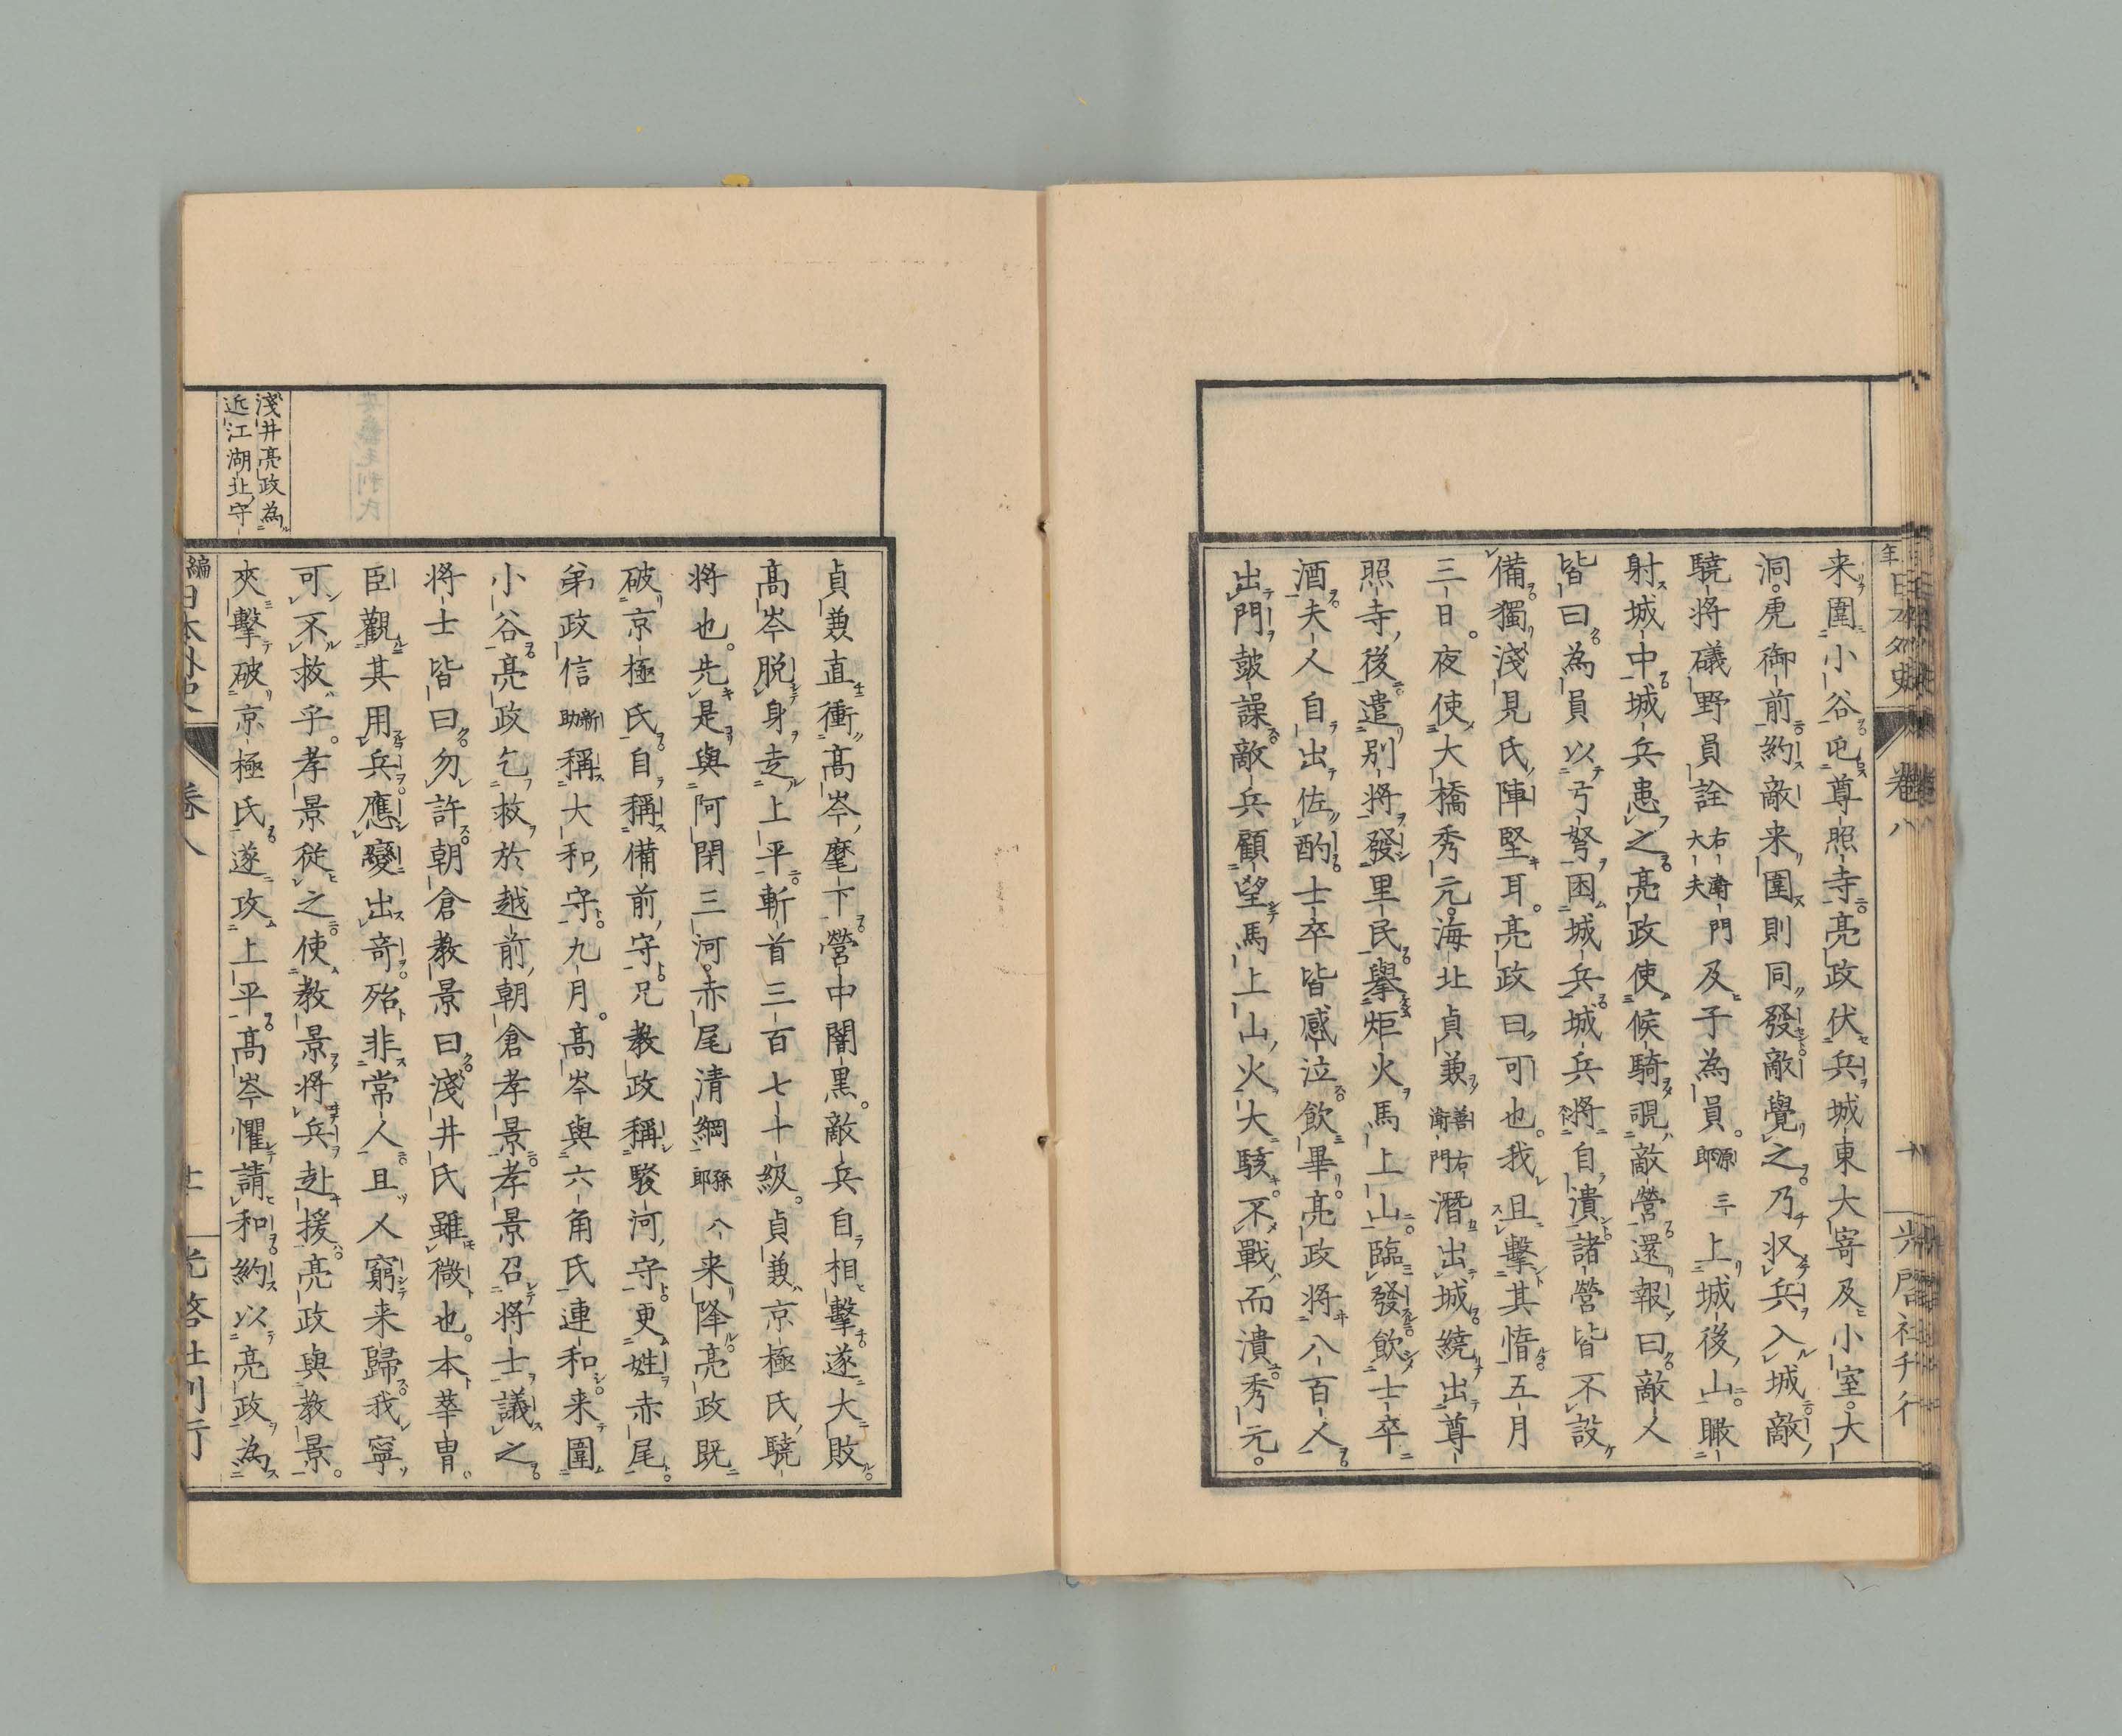 来圍小谷屯尊照寺亮政伏兵城東大寄及小室大
洞虎御前約敵来圍則同發敵覺之乃収兵入城敵
驍将礒野員詮右衛門大夫及子為員源三郎上城後山瞰
射城中城兵患之亮政使候騎覘敵營還報曰敵人
皆曰為員以弓弩困城兵城兵将自潰諸營皆不設
備獨淺見氏陣堅耳亮政曰可也我且擊其惰五月
三日夜使大橋秀元海北貞兼善右衛門潛出城繞出尊
照寺後遣別将發里民擧炬火馬上山臨發飲士卒
酒夫人自出佐酌士卒皆感泣飲畢亮政将八百人
出門鼓譟敵兵顧望馬上山火大駭不戰而潰秀元
貞兼直衝髙岑麾下營中闇黒敵兵自相擊遂大敗
髙岑脱身走上平斬首三百七十級貞兼京極氏驍
将也先是與阿閉三河赤尾清綱孫八郎来降亮政既
破京極氏自稱備前守兄教政稱駿河守更姓赤尾
弟政信新助稱大和守九月髙岑與六角氏連和来圍
小谷亮政乞救於越前朝倉孝景孝景召将士議之
将士皆曰勿許朝倉教景曰淺井氏雖微也本華冑
臣觀其用兵應變出奇殆非常人且人窮来歸我寧
可不救乎孝景従之使教景将兵赴援亮政與教景
夾擊破京極氏遂攻上平髙岑懼請和約以亮政為
淺井亮政為
近江湖北守
卷八
光啓社刊行